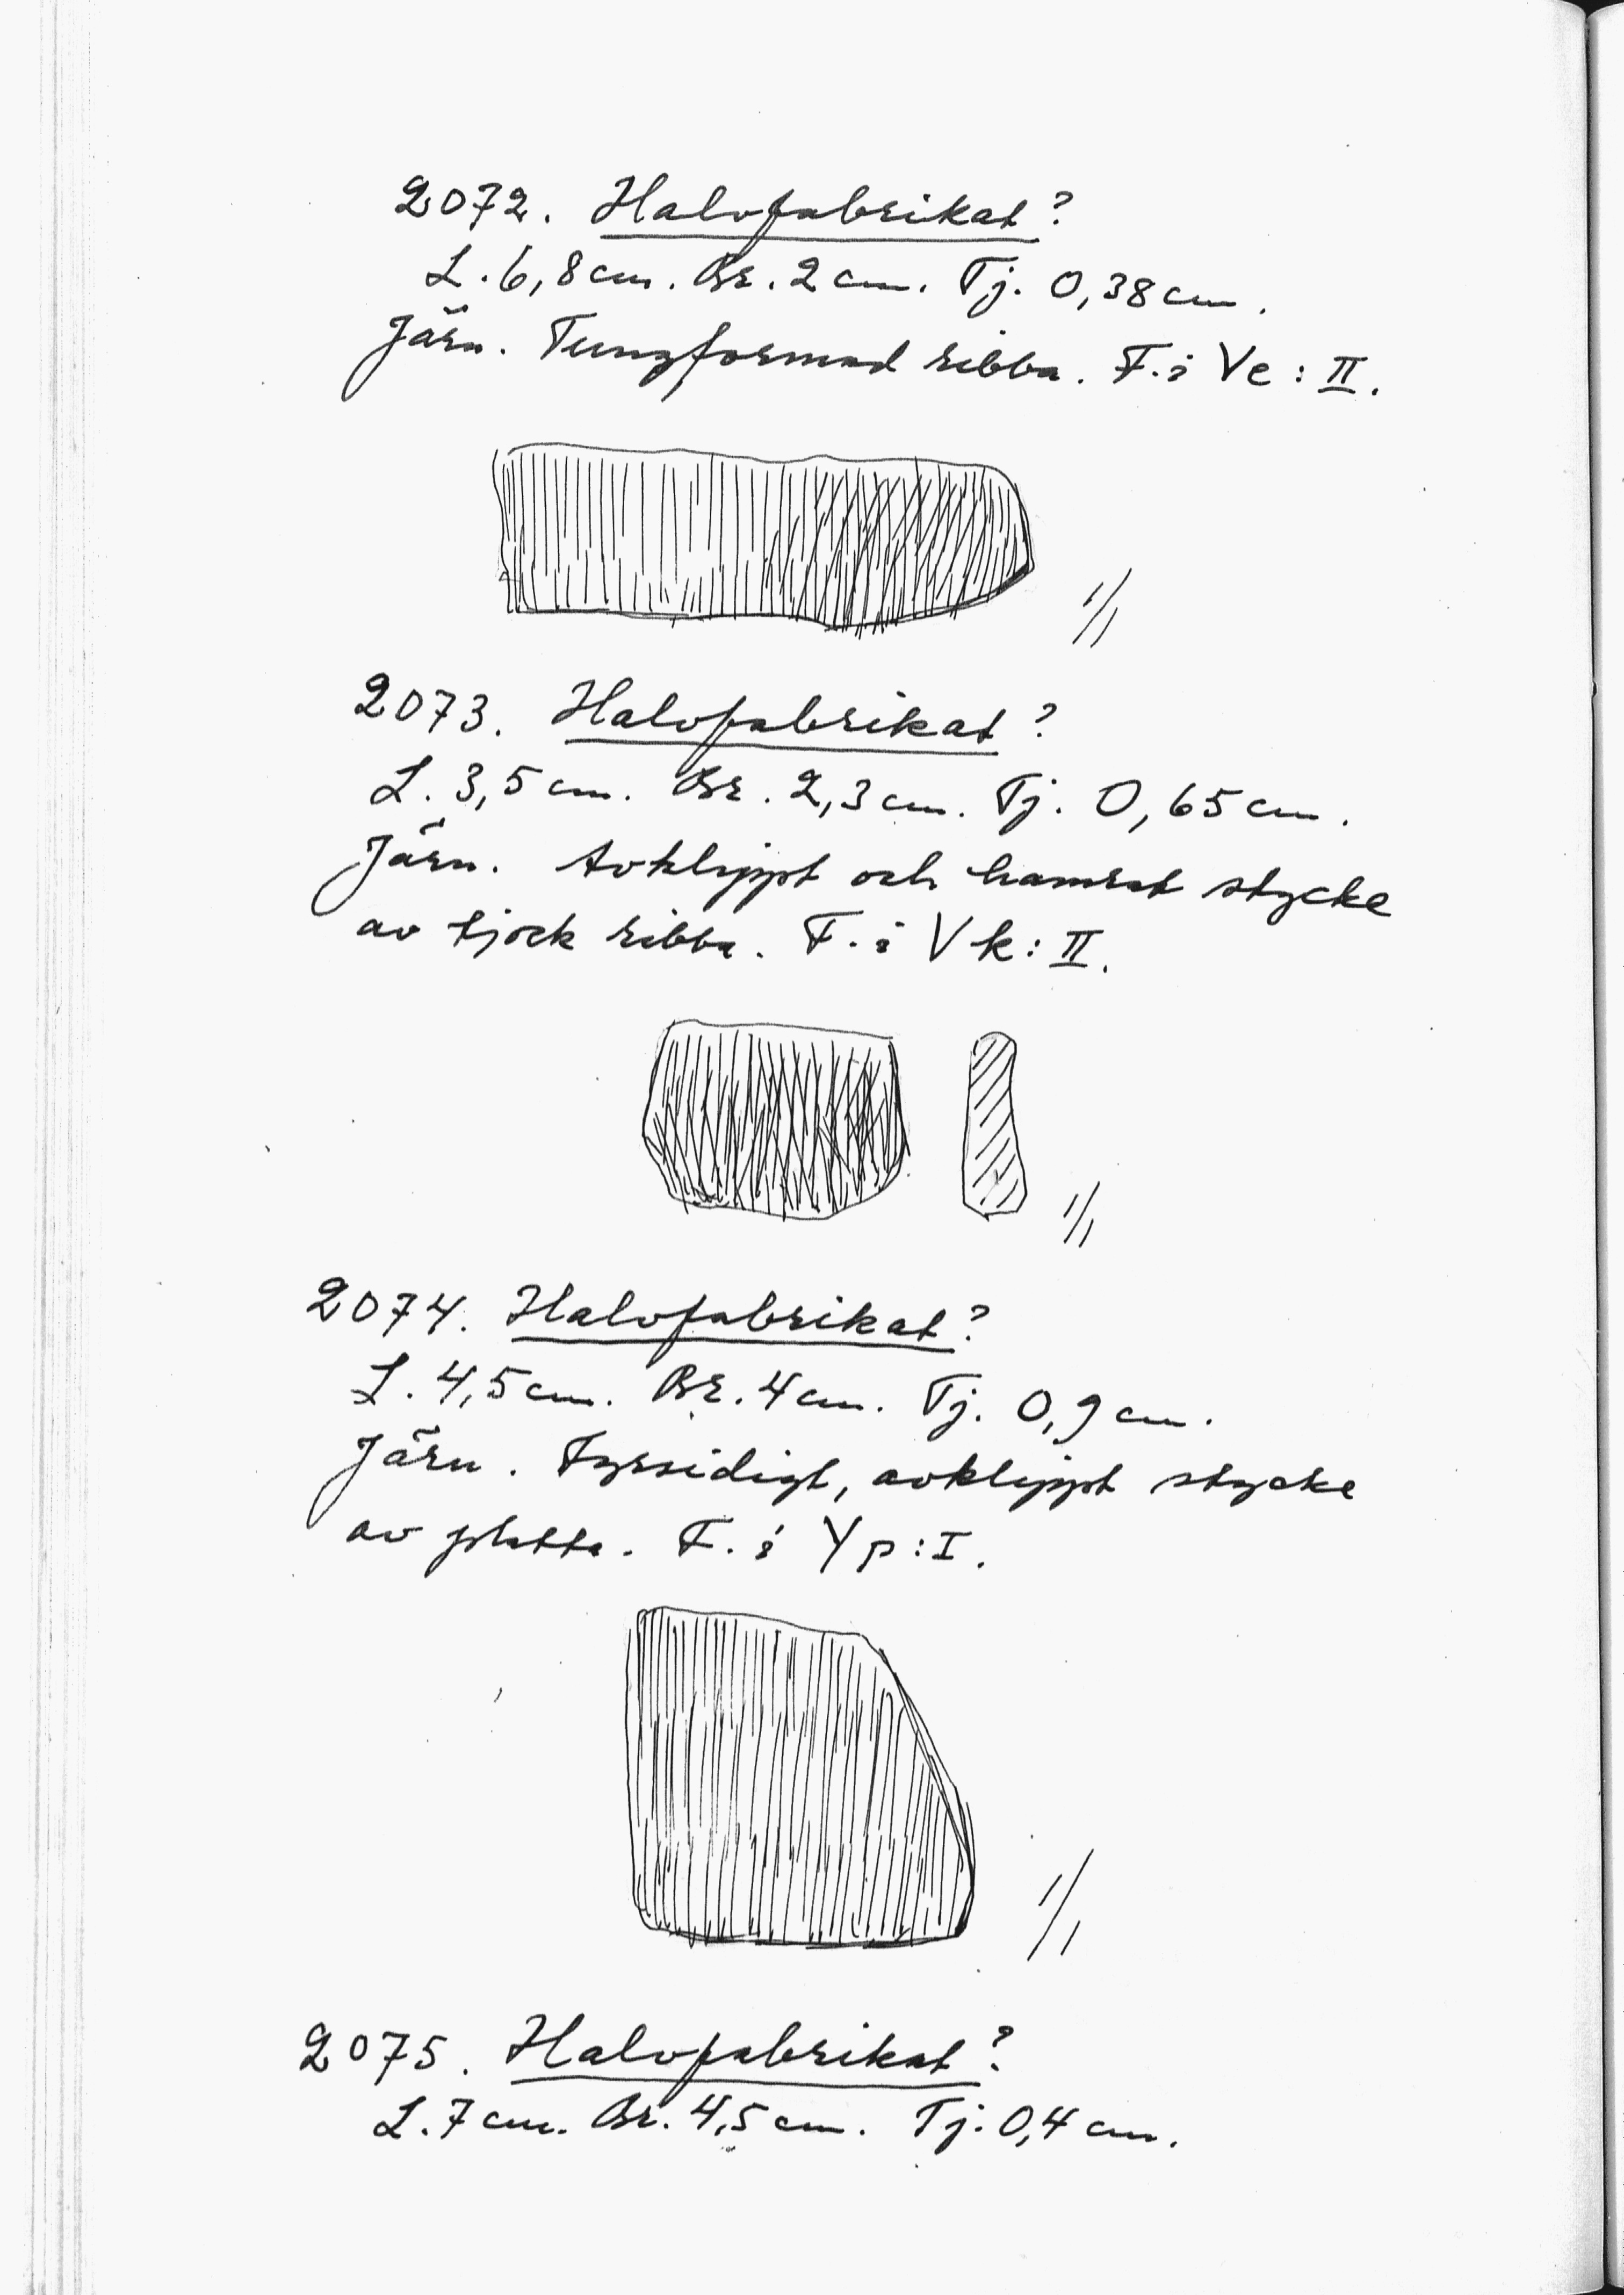 2072. Halvfabrikat?
L. 6,8 cm. Br. 2 cm. Tj. 0,38 cm.
Järn. Tungformad ribba. F. i Ve : II.
1/1
2073. Halvfabrikat?
L. 3,5 cm. Br. 2,3 cm. Tj. 0,65 cm.
Järn. Avklippt och hamrat stycke
av tjock ribba. F. i Vk : II.
1/1
2074. Halvfabrikat?
L. 4,5 cm. Br. 4 cm. Tj. 0,9 cm.
Järn. Fyrsidigt, avklippt stycke
av platta. F. i Yp : I.
1/1
2075. Halvfabrikat?
L. 7 cm. Br. 4,5 cm. Tj. 0,4 cm.